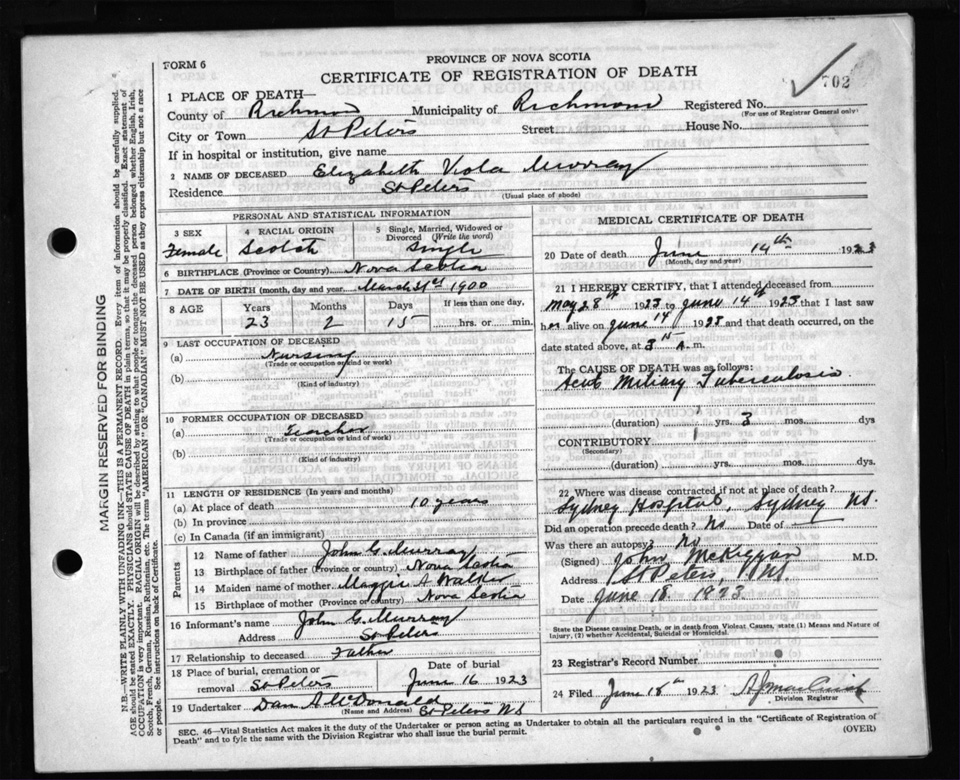 FORM 6
PROVINCE OF NOVA SCOTIA
CERTIFICATE OF REGISTRATION OF DEATH
702
1 PLACE OF DEATH—
County of Richmond Municipality of Richmond Registered No.
(For use of Registrar General only)
City or Town St Peters Street House No.
If in hospital or institution, give name
2 NAME OF DECEASED Elizabeth Viola Murray
Residence St Peters
(Usual place of abode)
PERSONAL AND STATISTICAL INFORMATION
3 SEX Female
4 RACIAL ORIGIN Scotch
5 Single, Married, Widowed or Divorced (Write the word) Single
6 BIRTHPLACE (Province or Country) Nova Scotia
7 DATE OF BIRTH (month, day and year) March 31st 1900
8 AGE Years Months Days If less than one day,
23 2 15 hrs. or min.
9 LAST OCCUPATION OF DECEASED
(a) Nursing
(Trade or occupation or kind of work)
(b)
(Kind of industry)
10 FORMER OCCUPATION OF DECEASED
(a) Teacher
(Trade or occupation or kind of work)
(b)
(Kind of industry)
11 LENGTH OF RESIDENCE (In years and months)
(a) At place of death 10 years
(b) In province
(c) In Canada (if an immigrant)
Parents
12 Name of father John G. Murray
13 Birthplace of father (Province or country) Nova Scotia
14 Maiden name of mother Maggie A Walker
15 Birthplace of mother (Province or Country) Nova Scotia
16 Informant's name John G. Murray
Address St Peters
17 Relationship to deceased Father
18 Place of burial, cremation or removal St Peters
Date of burial June 16 1923
19 Undertaker Dan A McDonald
(Name and Address) St Peters N S
MEDICAL CERTIFICATE OF DEATH
20 Date of death June 14th 1923
(Month, day and year)
21 I HEREBY CERTIFY, that I attended deceased from
May 28th 1923 to June 14th 1923 that I last saw
her alive on June 14 1923 and that death occurred, on the
date stated above, at 3 A. m.
The CAUSE OF DEATH was as follows:
Acute Miliary Tuberculosis
(duration) yrs. 3 mos. dys
CONTRIBUTORY
(Secondary)
(duration) yrs. mos. dys.
22 Where was disease contracted if not at place of death?
Sydney Hospital, Sydney N.S.
Did an operation precede death? No Date of
Was there an autopsy? No
(Signed) John McKiggan M.D.
Address St Peters,
Date June 18 1923
State the Disease causing Death, or in death from Violent Causes, state (1) Means and Nature of
Injury, (2) whether Accidental, Suicidal or Homicidal.
23 Registrar's Record Number
24 Filed June 18th 1923
Division Registrar
SEC. 46—Vital Statistics Act makes it the duty of the Undertaker or person acting as Undertaker to obtain all the particulars required in the "Certificate of Registration of
Death" and to fyle the same with the Division Registrar who shall issue the burial permit.
(OVER)
MARGIN RESERVED FOR BINDING
N.B.—WRITE PLAINLY WITH UNFADING INK—THIS IS A PERMANENT RECORD. Every item of information should be carefully supplied.
AGE should be stated EXACTLY. PHYSICIANS should STATE CAUSE OF DEATH in plain terms, so that it may be properly classified. Exact statement of
OCCUPATION is very important. RACIAL ORIGIN will be described by stating to what people or tongue the deceased person belonged whether English, Irish,
Scotch, French, German, Russian, Ruthenian, etc. The terms "AMERICAN" OR "CANADIAN" MUST NOT BE USED as they express citizenship but not a race
or people. See instructions on back of Certificate.